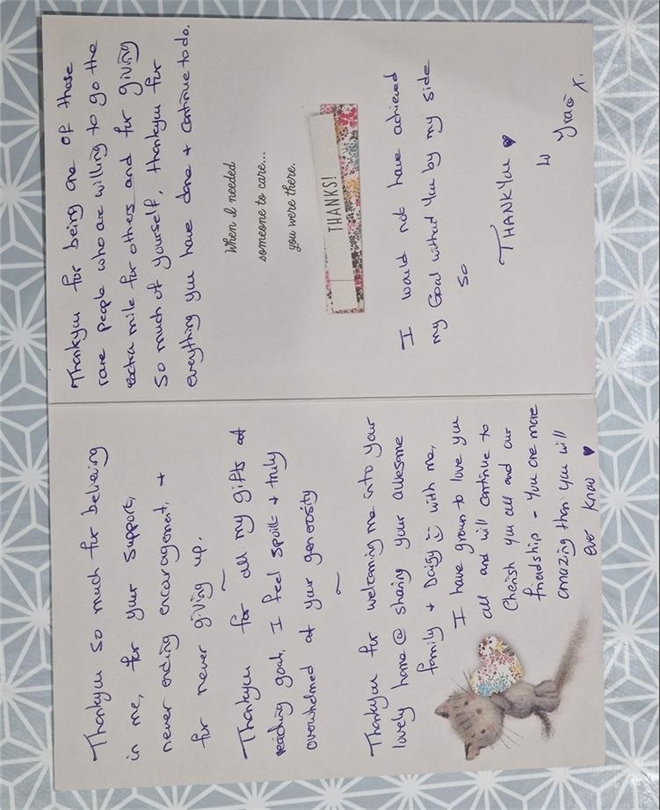 Thankyou so much for believing
in me, for your support,
never ending encouragement, +
for never giving up.
Thankyou for all my gifts at
reaching goal, I feel spoilt + truly
overwhelmed at your generosity
Thankyou for welcoming me into your
lovely home @ sharing your awesome
family + Daisy with me,
I have grown to love you
all and will continue to
Cherish you all and our
friendship - You are more
amazing than you will
ever know
Thankyou for being one of those
rare people who are willing to go the
extra mile for others and for giving
so much of yourself, thankyou for
everything you have done + continue to do.
When I needed
someone to care...
you were there.
THANKS!
I would not have achieved
my Goal without you by my side
so
THANKYOU
x.